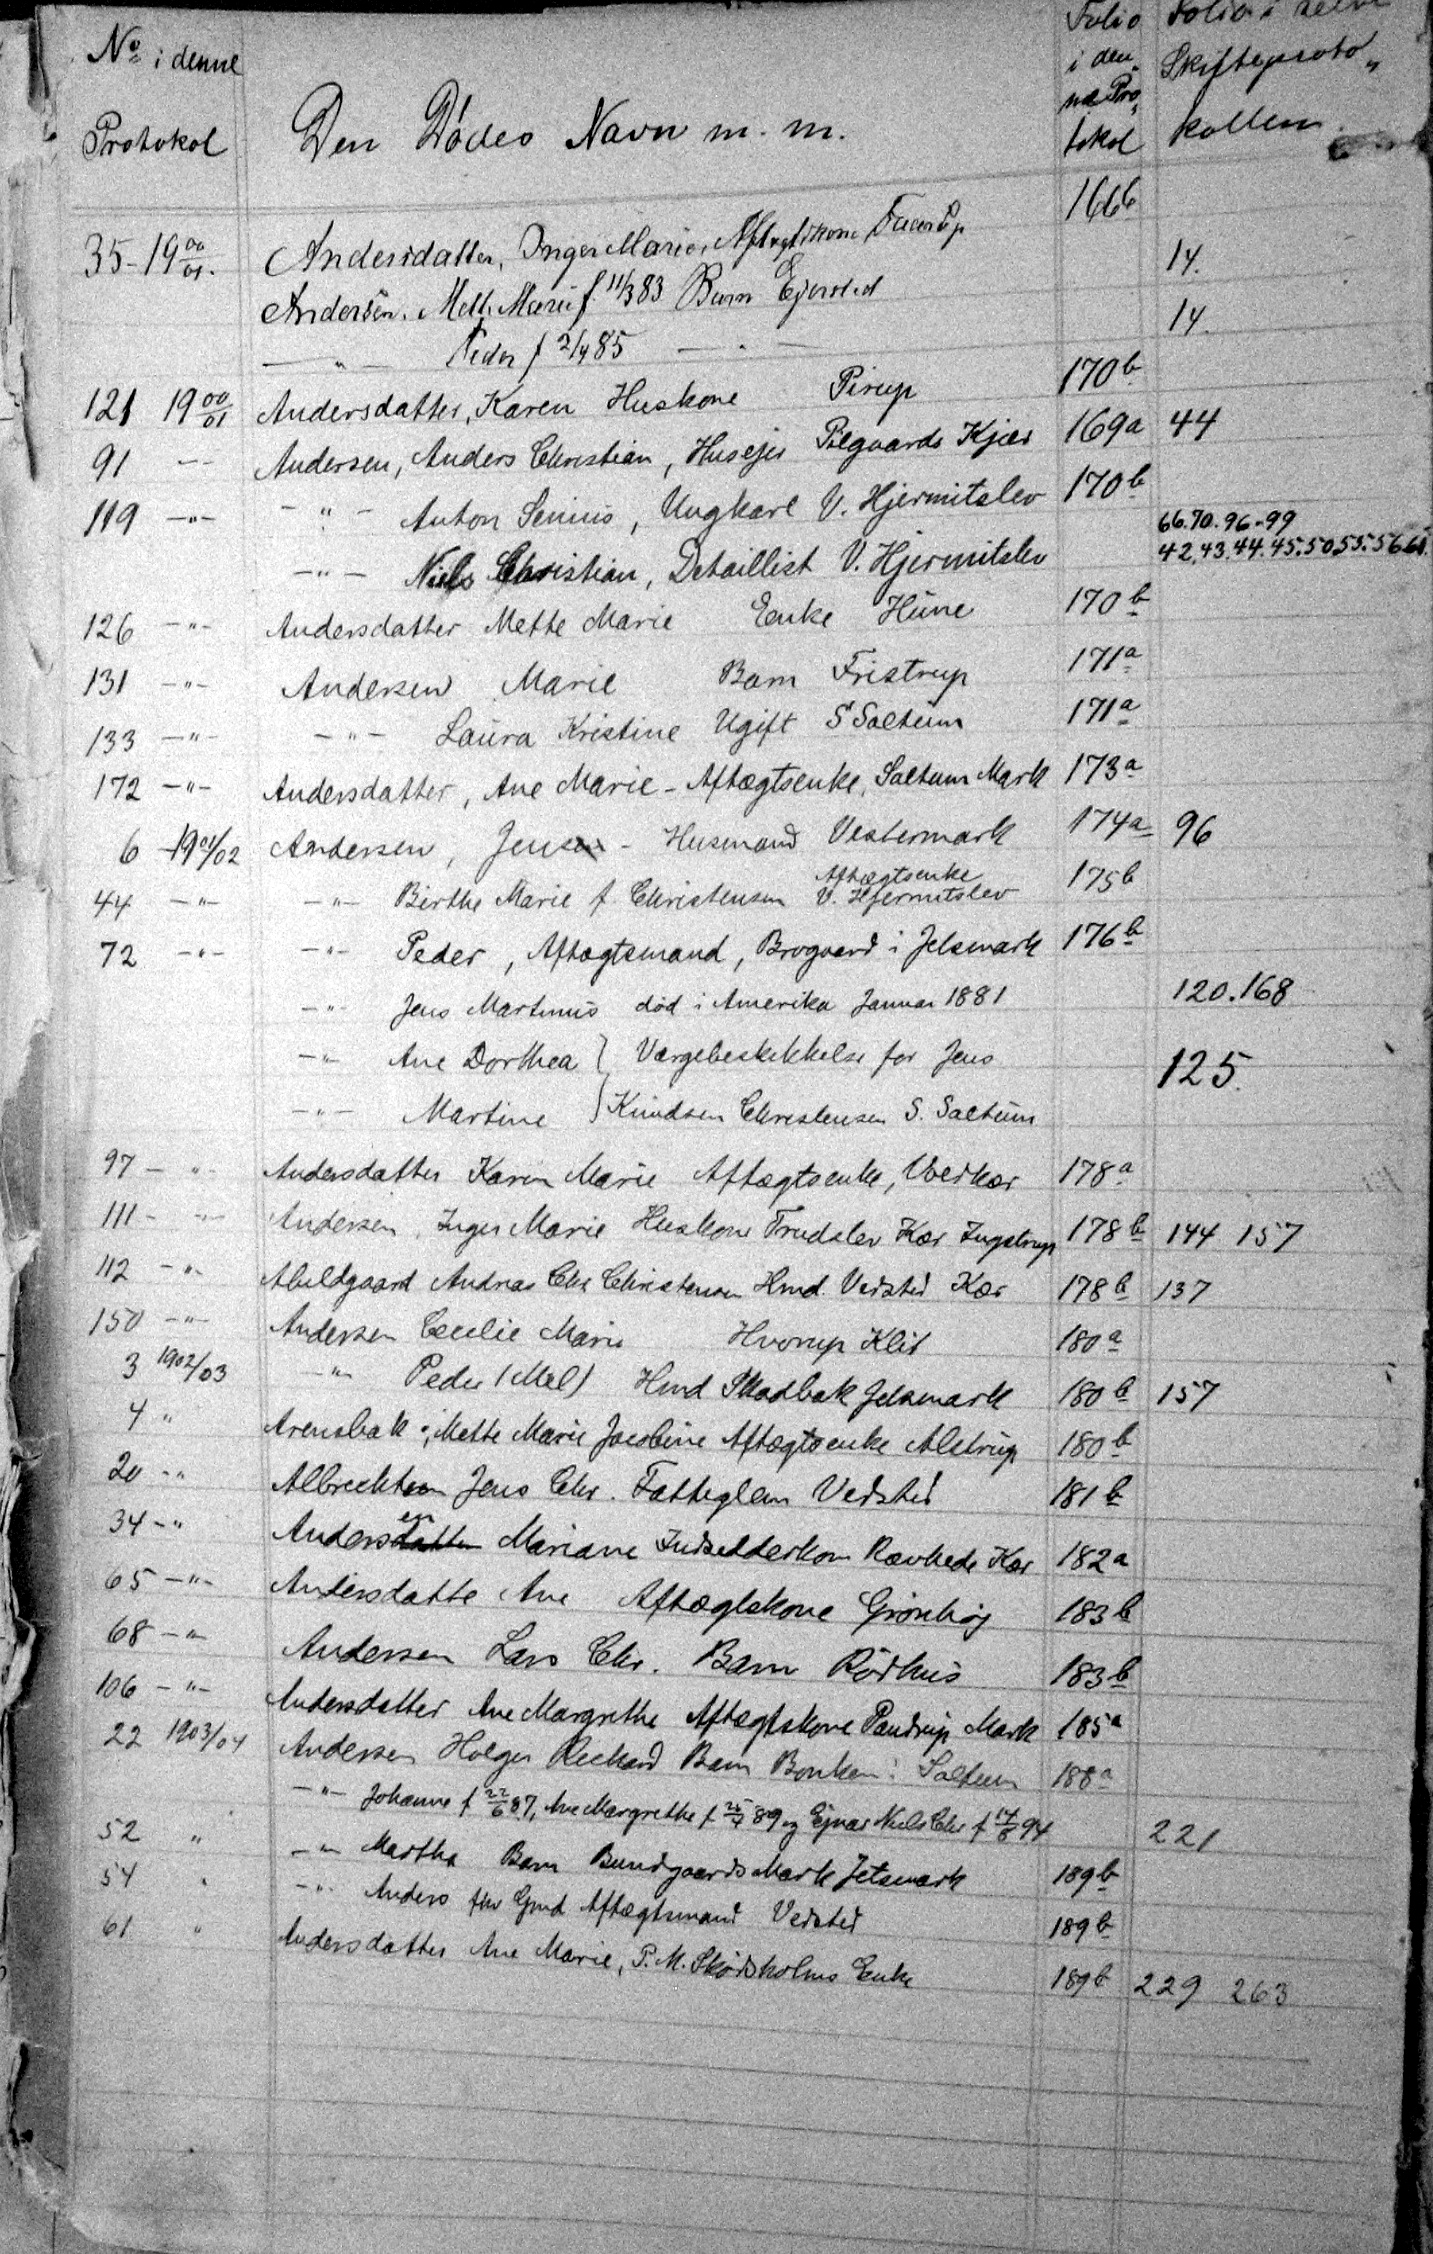 No i denne Protokol | Den Dødes Navn m. m. | Folio i denne Protokol | Folio i selve Skifteprotokollen
35-19 00/01. Andersdatter, Inger Marie, Aftægtskone 166b
Andersen. Mette Marie f. 11/3 83 Barn Ejersted 14.
—"— Peder f 2/4 85 —"— 14.
121 19 00/01 Andersdatter, Karen Huskone Pirup 170b
91 -"- Andersen, Anders Christian, Husejer Pilgaards Kjær 169a 44
119 -"- -"- Anton Senius, Ungkarl V. Hjermitslev 170b
-"- Niels Christian, Detaillist V. Hjermitslev 66.70.96-99 42.43.44.45.50.55.56.61.
126 -"- Andersdatter Mette Marie Enke Hune 170b
131 -"- Andersen Marie Barn Fristrup 171a
133 -"- -"- Laura Kristine Ugift S Saltum 171a
172 -"- Andersdatter, Ane Marie - Aftægtsenke, Saltum Mark 173a
6 1901/02 Andersen, Jens - Husmand Vestermark 174a 96
44 -"- -"- Birthe Marie f. Christensen Aftægtsenke V. Hjermitslev 175b
72 -"- -"- Peder, Aftægtsmand, Brogaard i Jetsmark 176b
-"- Jens Martinus død i Amerika Januar 1881 120.168
-"- Ane Dorthea } Værgebeskikkelse for Jens 125.
-"- Martine } Knudsen Christensen S. Saltum
97 - "- Andersdatter Karen Marie Aftægtsenke, Voerkær 178a
111 - "- Andersen, Inger Marie Huskone Trudslev Kær Ingstrup 178b 144 157
112 -"- Abildgaard Andreas Chr Christensen Hmd. Vedsted Kær 178b 137
150 -"- Andersen Cecilie Marie Hvorup Klit 180a
3 1902/03 -"- Peder (Møl) Hmd Skadbak Jetsmark 180b 157
4 " Arensbak, Mette Marie Jacobine Aftægtsenke Alstrup 180b
20 -" Albrechtsen Jens Chr. Fattiglem Vedsted 181b
34 -" Andersen Mariane Indsidderkone Kær 182a
65 -"- Andersdatte Ane Aftægtskone Grønhøj 183b
68 -"- Andersen Lars Chr. Barn Rødhus 183b
106 -"- Andersdatter Ane Margrethe Aftægtskone Pandrup Mark 185a
22 1903/04 Andersen Holger Rickard Barn Bonken: Saltum 188a
-"- Johanne f 22/6 87, Ane Margrethe f. 25/4 89 og Ejnar Niels Chr f 14/8 94 221
52 " -"- Martha Barn Bundgaards Mark Jetsmark 189b
54 " -"- Anders fhv Gmd Aftægtsmand Vedsted 189b
61 " Andersdatter Ane Marie, P. M. Skødsholms Enke 189b 229 263